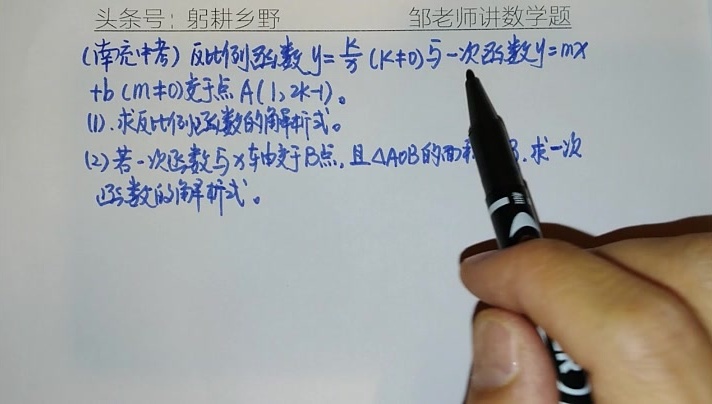 头条号：躬耕乡野 邹老师讲数学题
(南充中考) 反比例函数y=k/x(k≠0)与一次函数y=mx
+b(m≠0)交于点A(1,2k-1)。
(1).求反比例函数的解析式。
(2)若一次函数与x轴交于B点,且△AOB的面积 3.求一次
函数的解析式。